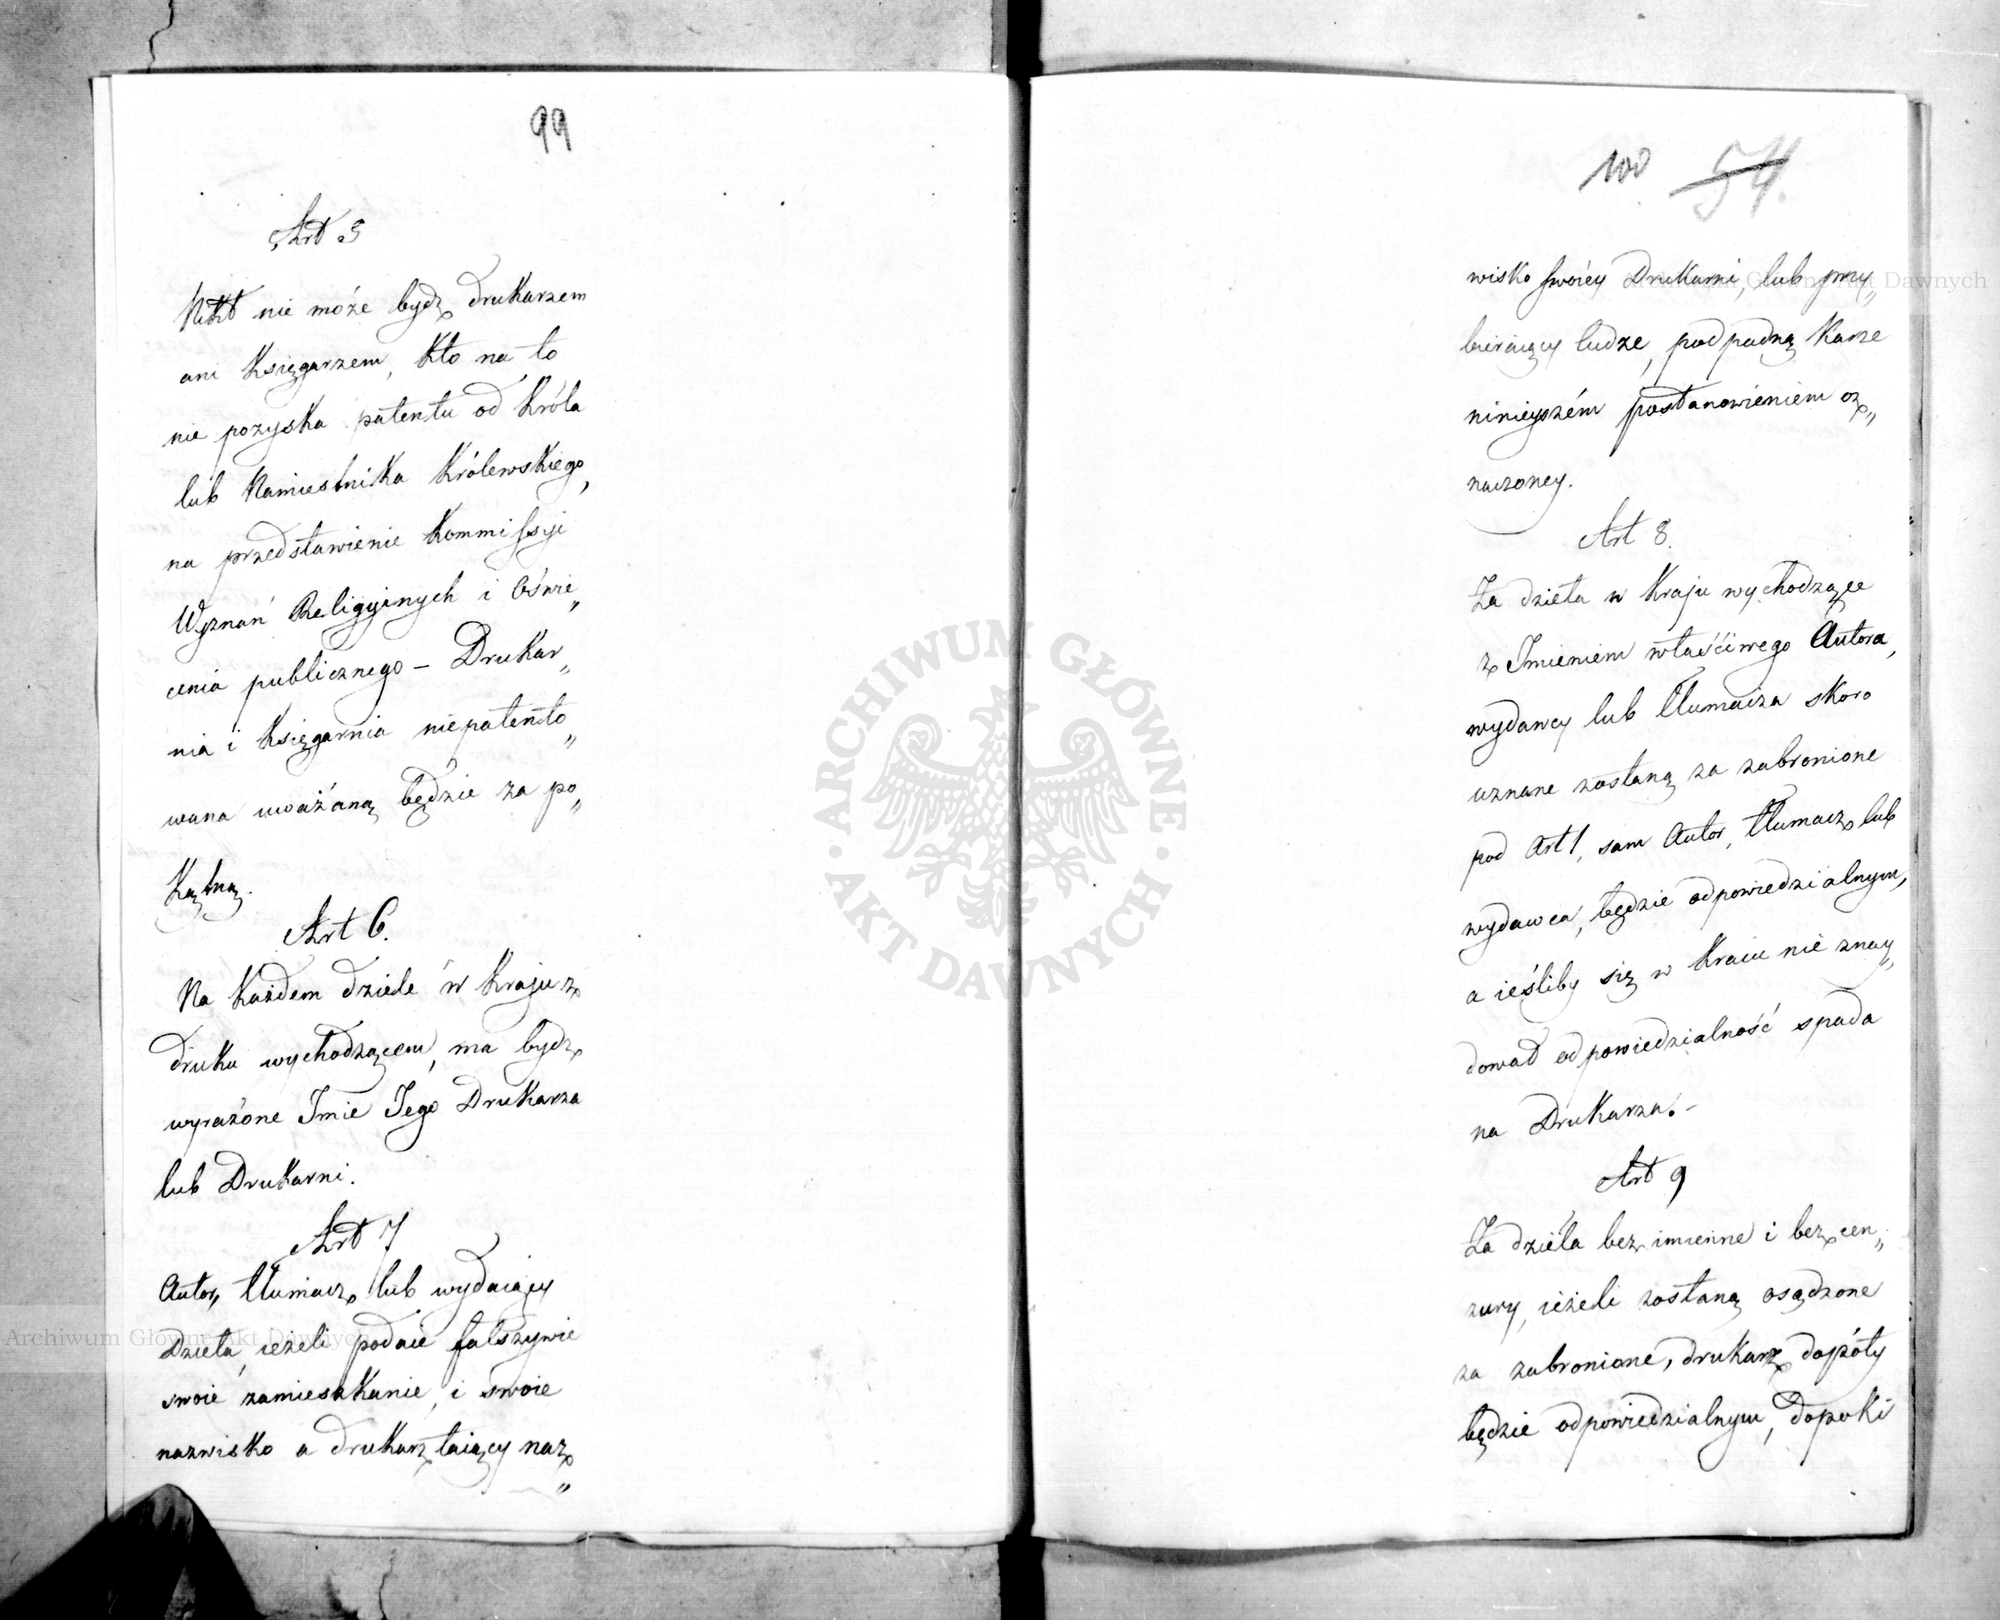 99
Art 5
Nikt nie może bydz drukarzem
ani Księgarzem, kto na to
nie pozyska patentu od Króla
lub Namiestnika Królewskiego,
na przedstawienie Kommissyi
Wyznań Religyinych i Oświe„
cenia publicznego – Drukar„
nia i Księgarnia niepatento„
wana uważaną będzie za po„
kątną.
Art 6.
Na każdem dziele w kraju z
druku wychodzącem, ma bydz
wyrażone Imie Jego Drukarza
lub Drukarni.
Art 7
Autor, tłumacz, lub wydaiący
Dzieła, ieżeli podaie fałszywie
swoie zamieszkanie, i swoie
nazwisko a drukarz taiący naz„
100 54.
wisko swoiey Drukarni, lub przy„
bieraiący cudze, podpadną karze
ninieyszém postanowieniem oz„
naczoney.
Art 8.
Za dzieła w Kraju wychodzące
z Imieniem właściwego Autora,
wydawcy lub tłumacza skoro
uznane zostaną za zabronione
pod Art 1, sam Autor, tłumacz lub
wydawca, będzie odpowiedzialnym,
a ieśliby się w Kraiu nie znay„
dował odpowiedzialność spada
na Drukarza. –
Art 9
Za dzieła bezimienne i bez cen„
zury, ieżeli zostaną osądzone
za zabronione, drukarz dopóty
będzie odpowiedzialnym, dopuki
ARCHIWUM GŁÓWNE
AKT DAWNYCH
Archiwum Główne Akt Dawnych
Archiwum Główne Akt Dawnych